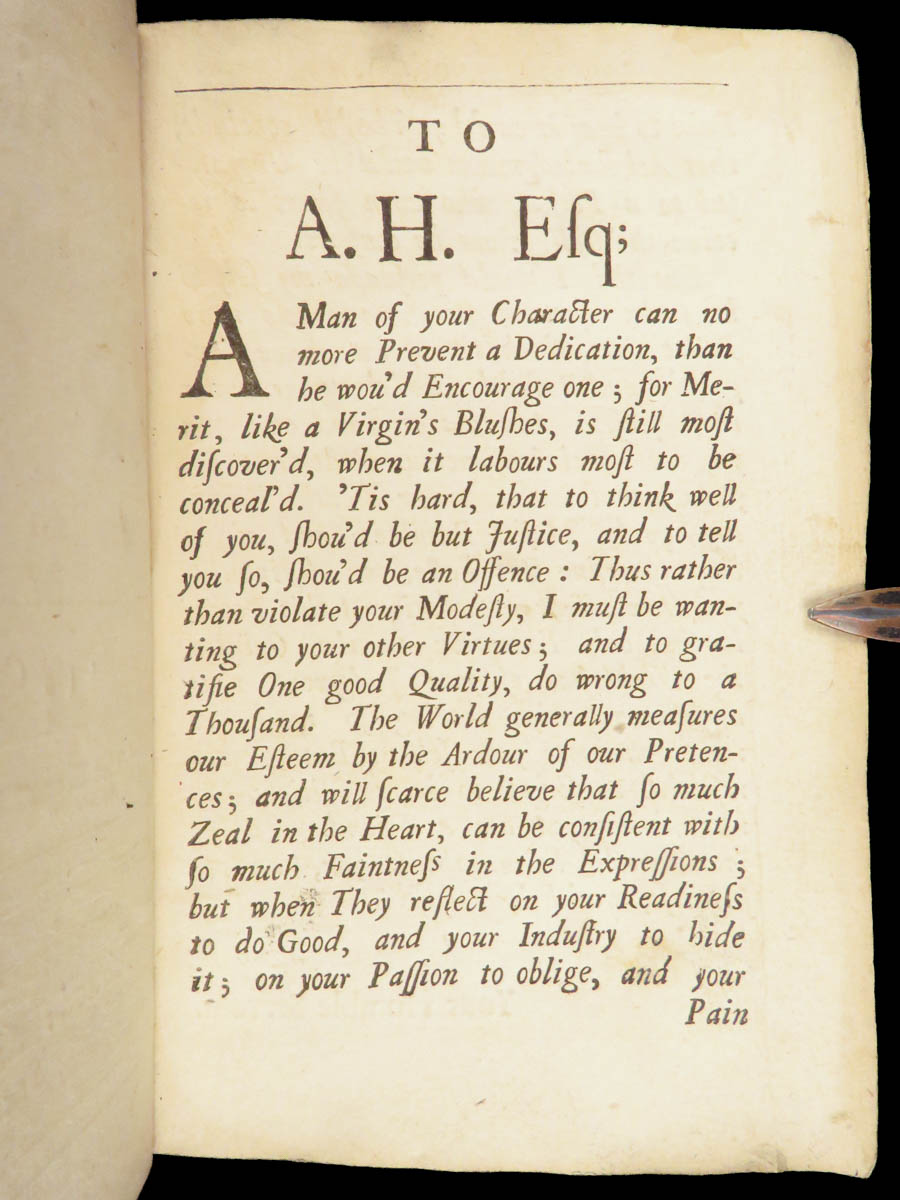 TO
A. H. Eſq;
A Man of your Character can no
more Prevent a Dedication, than
he wou'd Encourage one; for Me-
rit, like a Virgin's Bluſhes, is ſtill moſt
diſcover'd, when it labours moſt to be
conceal'd. 'Tis hard, that to think well
of you, ſhou'd be but Juſtice, and to tell
you ſo, ſhou'd be an Offence: Thus rather
than violate your Modeſty, I muſt be wan-
ting to your other Virtues; and to gra-
tifie One good Quality, do wrong to a
Thouſand. The World generally meaſures
our Eſteem by the Ardour of our Preten-
ces; and will ſcarce believe that ſo much
Zeal in the Heart, can be conſiſtent with
ſo much Faintneſs in the Expreſſions;
but when They reflect on your Readineſs
to do Good, and your Induſtry to hide
it; on your Paſſion to oblige, and your
Pain